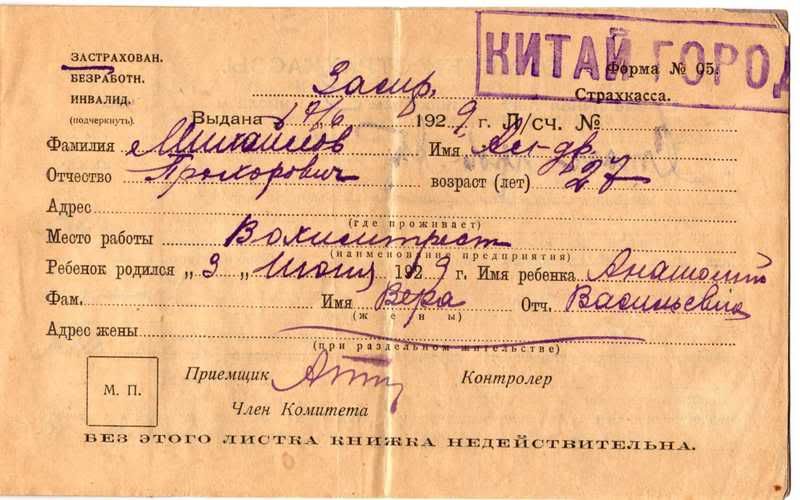 КИТАЙ ГОРОД
Форма № 05.
Страхкасса.
ЗАСТРАХОВАН.
БЕЗРАБОТН.
ИНВАЛИД.
(подчеркнуть).
Застр.
Выдана 17/6 1929 г. Л/СЧ. №
Фамилия Михайлов Имя Ал-др
Отчество Прохорович возраст (лет) 27
Адрес
(где проживает)
Место работы
(наименования предприятия)
Ребенок родился „ 3 „ Июня 1929 г. Имя ребенка Анатолий
Фам. Имя Вера Отч. Васильевна
(жены)
Адрес жены
(при раздельном жительстве)
М. П.
Приемщик Контролер
Член Комитета
БЕЗ ЭТОГО ЛИСТКА КНИЖКА НЕДЕЙСТВИТЕЛЬНА.